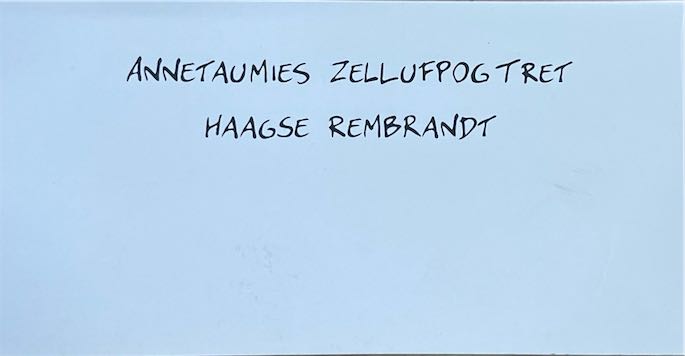 ANNETAUMIES ZELLUFPOGTRET
HAAGSE REMBRANDT